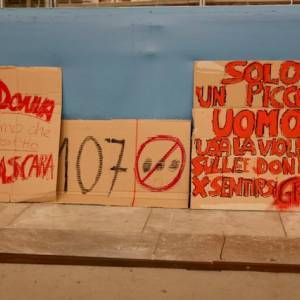 Donna
MASCARA
107
SOLO
UN PICCO
UOMO
USA LA VIOLE
SULLE DON
X SENTIRSI GR